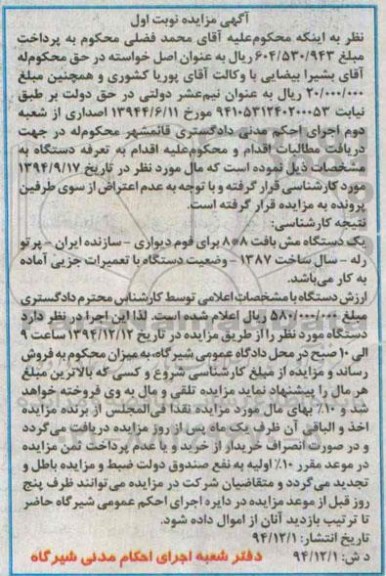 آگهی مزایده نوبت اول
نظر به اینکه محکوم‌علیه آقای محمد فضلی محکوم به پرداخت
مبلغ ۶۰۴/۵۳۰/۹۴۳ ریال به عنوان اصل خواسته در حق محکوم‌له
آقای بشیرا بیضایی با وکالت آقای پوریا کشوری و همچنین مبلغ
۲۰/۰۰۰/۰۰۰ ریال به عنوان نیم‌عشر دولتی در حق دولت بر طبق
نیابت ۹۴۱۰۵۳۱۲۴۰۲۰۰۰۵۳ مورخ ۱۳۹۴۴/۶/۱۱ اصداری از شعبه
دوم اجرای احکم مدنی دادگستری قائمشهر محکوم‌له در جهت
دریافت مطالبات اقدام و محکوم‌علیه اقدام به تعرفه دستگاه به
مشخصات ذیل نموده است که مال مورد نظر در تاریخ ۱۳۹۴/۹/۱۷
مورد کارشناسی قرار گرفته و با توجه به عدم اعتراض از سوی طرفین
پرونده به مزایده قرار گرفته است.
نتیجه کارشناسی:
یک دستگاه مش بافت ۸*۸ برای فوم دیواری - سازنده ایران - پرتو
رله - سال ساخت ۱۳۸۷ - وضعیت دستگاه با تعمیرات جزیی آماده
به کار می‌باشد.
ارزش دستگاه با مشخصات اعلامی توسط کارشناس محترم دادگستری
مبلغ ۵۸۰/۰۰۰/۰۰۰ ریال اعلام شده است. لذا این اجرا در نظر دارد
دستگاه مورد نظر را از طریق مزایده در تاریخ ۱۳۹۴/۱۲/۱۲ ساعت ۹
الی ۱۰ صبح در محل دادگاه عمومی شیرگاه، به میزان محکوم به فروش
رساند و مزایده از مبلغ کارشناسی شروع و کسی که بالاترین مبلغ
هر مال را پیشنهاد نماید مزایده تلقی و مال به وی فروخته خواهد
شد و ۱۰٪ بهای مال مورد مزایده نقدا فی‌المجلس از برنده مزایده
اخذ و الباقی آن ظرف یک ماه پس از روز مزایده دریافت می‌گردد
و در صورت انصراف خریدار از خرید و یا عدم پرداخت ثمن مزایده
در موعد مقرر ۱۰٪ اولیه به نفع صندوق دولت ضبط و مزایده باطل و
تجدید می‌گردد و متقاضیان شرکت در مزایده می‌توانند ظرف پنج
روز قبل از موعد مزایده در دایره اجرای احکم عمومی شیرگاه حاضر
تا ترتیب بازدید آنان از اموال داده شود.
تاریخ انتشار: ۹۴/۱۲/۱
د ش: ۹۴/۱۲/۱ دفتر شعبه اجرای احکام مدنی شیرگاه